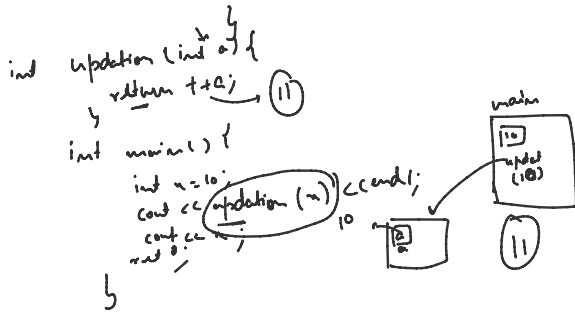 }
int updation (int a) {
return ++a; → 11
}
int main() {
int x = 10;
cout << updation (x) << endl;
cout << x;
ret 0;
}
10
main
10
updat
(10)
a
11